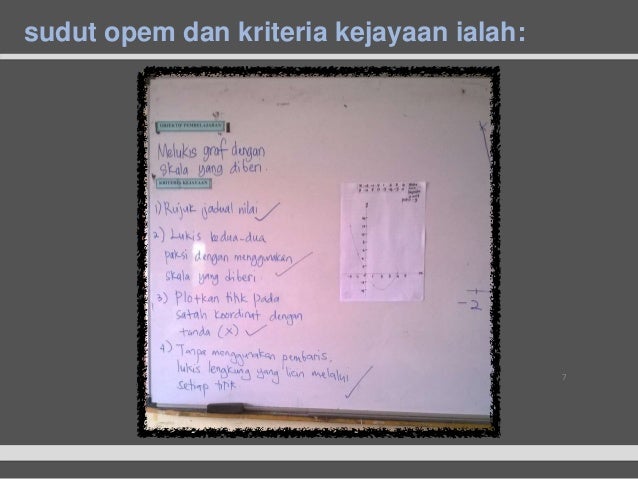 sudut opem dan kriteria kejayaan ialah:
OBJEKTIF PEMBELAJARAN
Melukis graf dengan
skala yang diberi.
KRITERIA KEJAYAAN
1) Rujuk jadual nilai
2) Lukis kedua-dua
paksi dengan menggunakan
skala yang diberi
3) Plotkan titik pada
satah koordinat dengan
tanda (X)
4) Tanpa menggunakan pembaris,
lukis lengkung yang licin melalui
setiap titik
7